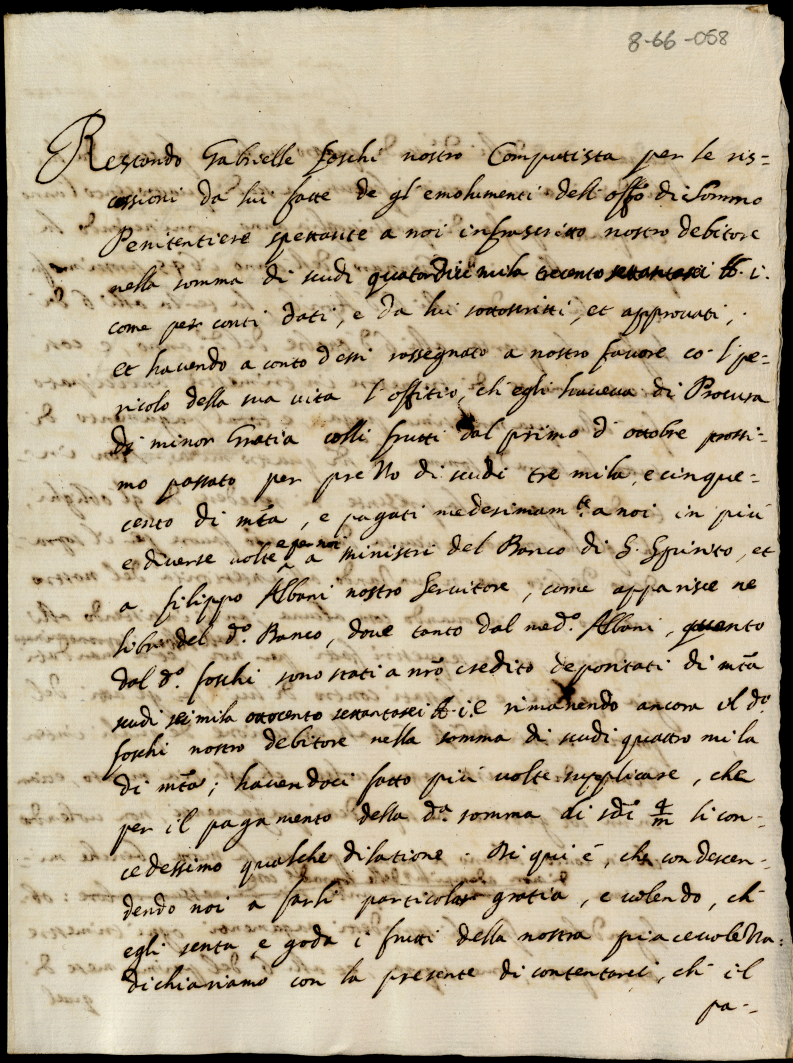 8-66-058
Restando Gabrielle foschi nostro Computista per le ris=
cossioni da lui fatte de gl'emolumenti dell'offo di Sommo
Penitentiere spettante a noi infrascritto nostro debitore
nella somma di scudi quatordici mila trecento settantasei
come per conti dati, e da lui sottoscritti, et approvati,
et havendo a conto d'essi rassegnato a nostro favore co' l'pe=
ricolo della sua vita l'offitio, ch'egli haveva di Procura
di minor Gratia colli frutti dal primo d'ottobre prossi=
mo passato per prezzo di scudi tre mila, e cinque=
cento di mta, e pagati medesimamte a noi in più
e diverse volte e per noi a ministri del Banco di S. Spirito, et
a filippo Albani nostro Servitore, come apparisce ne
libri del do. Banco, dove tanto dal medo. Albani, quanto
dal do. foschi sono stati a nro credito depositati di mta
scudi sei mila ottocento settantasei b. i. E rimanendo ancora il do.
foschi nostro debitore nella somma di scudi quattro mila
di mta; havendoci fatto più volte supplicare, che
per il pagamento della da. somma di sdi 4/m li con=
cedessimo qualche dilatione. Di qui è, che condescen=
dendo noi a farli particolar gratia, e volendo, ch'
egli senta, e goda i frutti della nostra piacevolezza.
dichiariamo con la presente di contentarci, ch'il
pa=